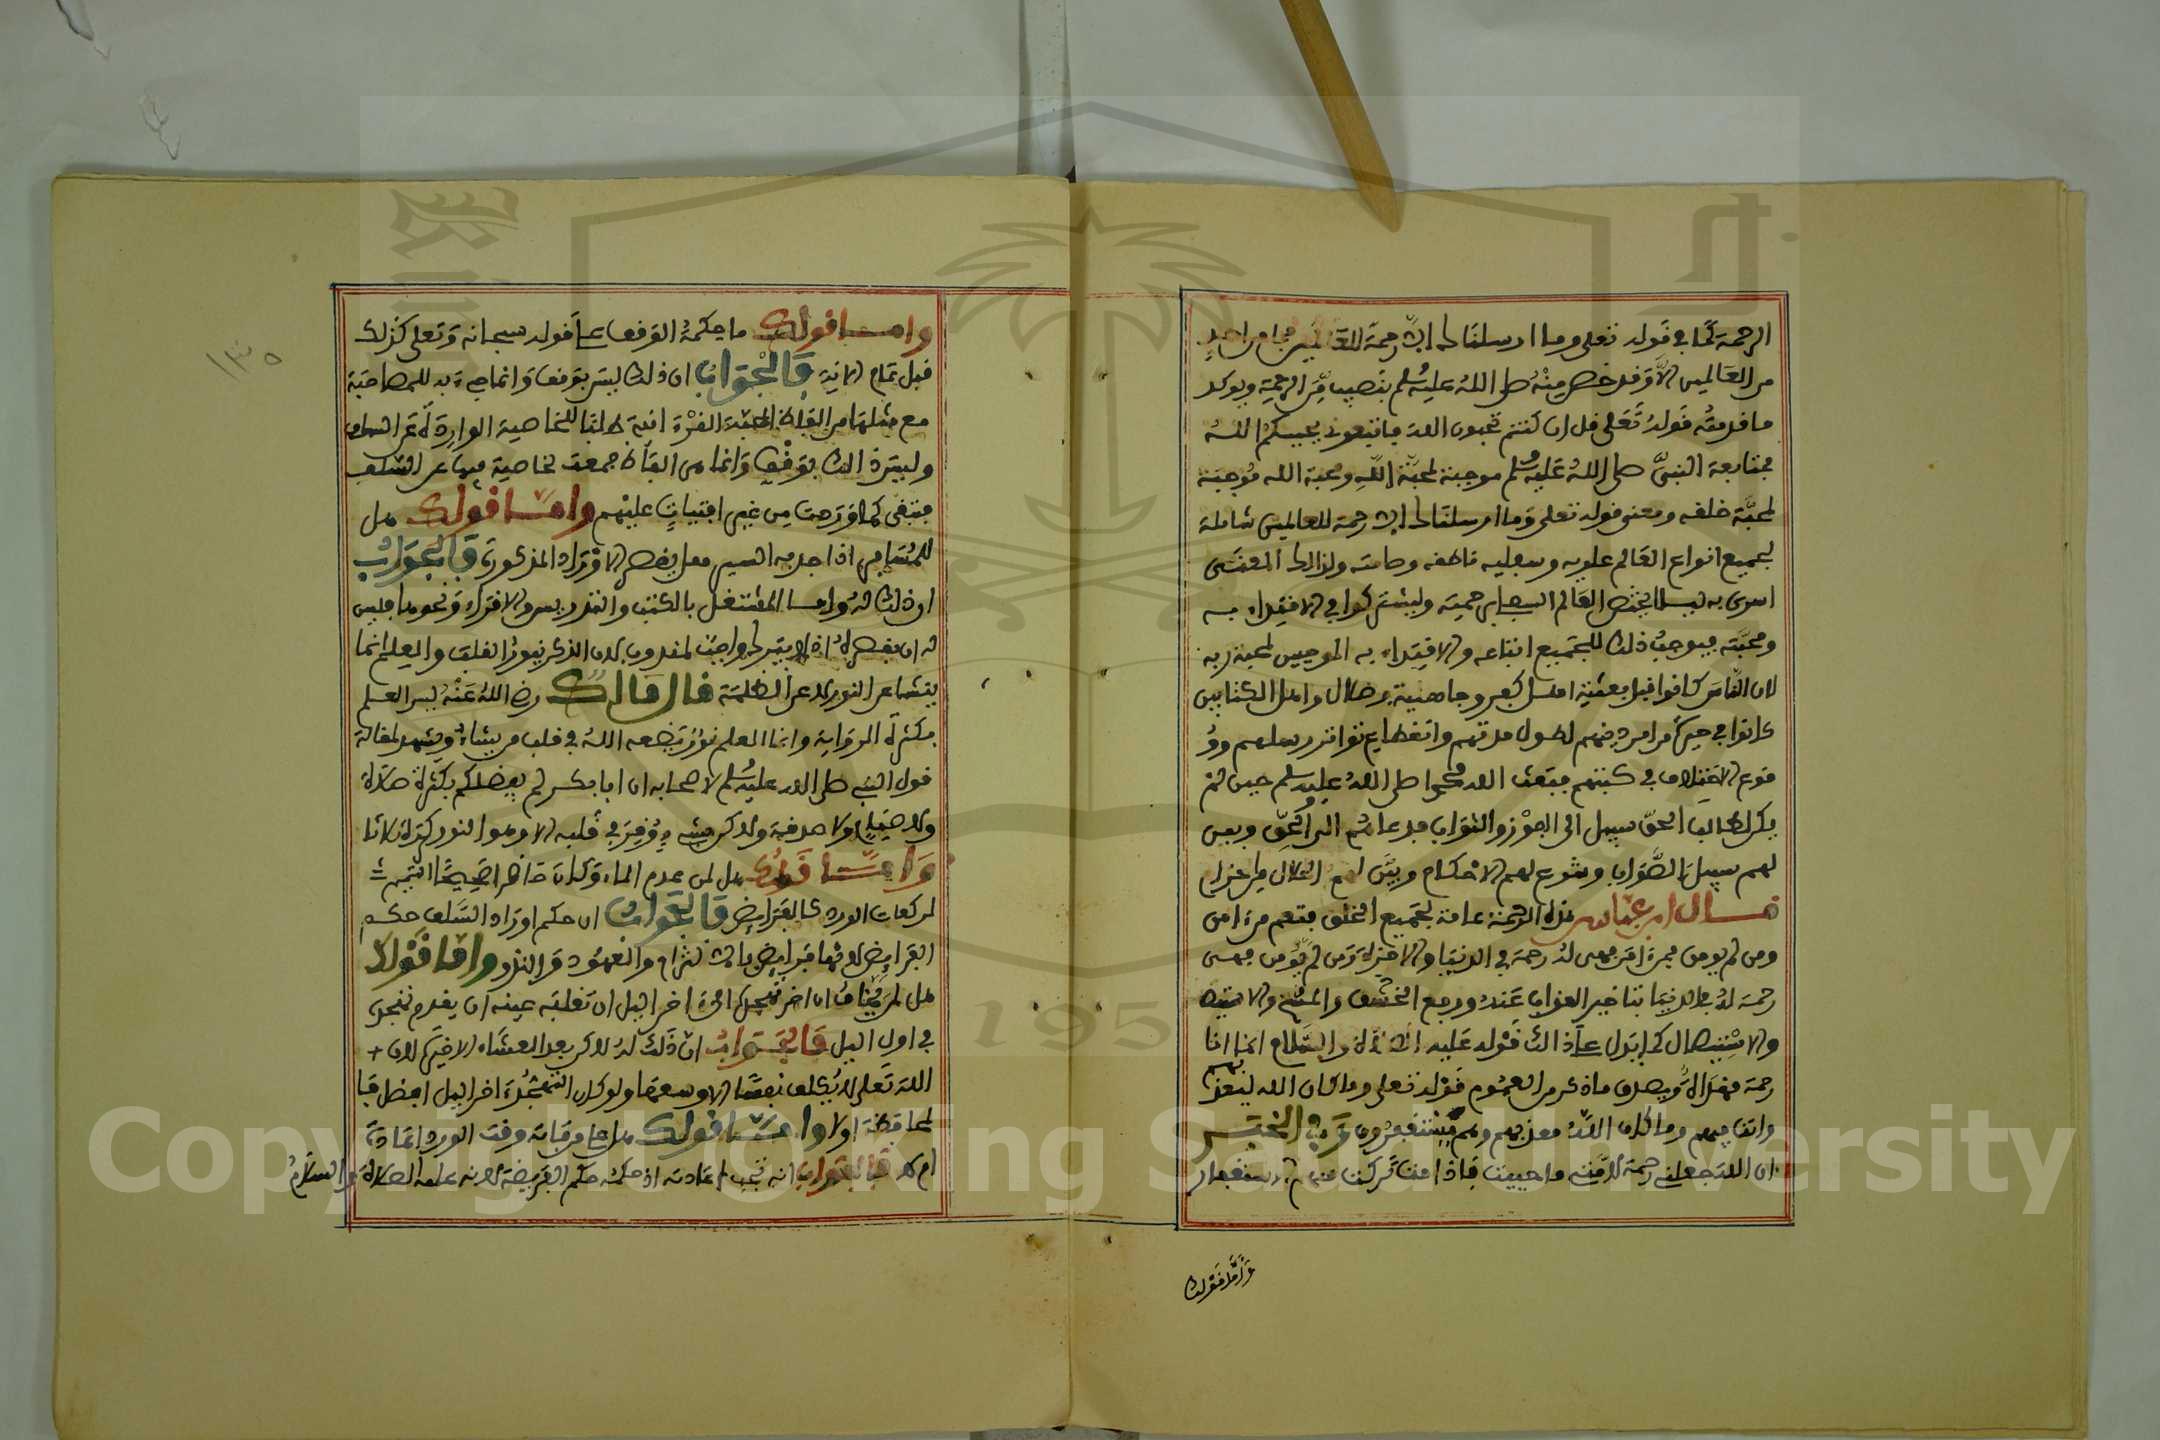 الرحمة كما في قوله تعلى وما ارسلناك الا رحمة للعالمين فما من احد
من العالمين الا وقد خص منه صلى الله عليه وسلم بنصيب من الرحمة ويوكد
ما قدمته قوله تعلى قل ان كنتم تحبون الله فاتبعوني يحببكم الله
فمتابعة النبي صلى الله عليه وسلم موجبة لمحبة الله ومحبة الله موجبة
لمحبة خلقه ومعنى قوله تعلى وما ارسلناك الا رحمة للعالمين شاملة
لجميع انواع العالم علويه وسفليه ناطقه وصامته ولذالك المعنى
اسرى به ليلا
ومحبته فيوجب ذلك للجميع اتباعه والاقتداء به الموجبين لمحبة ربه
لان الناس كانوا قبل بعثته اهل كفر وجاهلية وضلال واهل الكتابين
كانوا في حيرة من امر دينهم لطول مدتهم وانقطاع تواتر رسلهم وو
قوع الاختلاف في كتبهم فبعث الله محمدا صلى الله عليه وسلم حين لم
يكن لطالب الحق سبيل الى الفوز والثواب فدعاهم الى الحق وبين
لهم سبيل الصواب وشرع لهم الاحكام وبين لهم الحلال من الحرام
قال ابن عباس هذه الرحمة عامة لجميع الخلق فتعم من امن
ومن لم يومن فمن امن فهي له رحمة في الدنيا والاخرة ومن لم يومن فهي
رحمة له في الدنيا بتاخير العذاب عنه ورفع الخسف والمسخ
والاستيصال كما يدل على ذالك قوله عليه الصلاة والسلام انما انا
رحمة مهداة ويصدق ما ذكر من العموم قوله تعلى وما كان الله ليعذبهم
وانت فيهم وما كان الله معذبهم وهم يستغفرون وفي الخبر
ان الله جعلني رحمة لامتي ما حييت فاذا مت تركت فيهم الاستغفار
واما قولك
واما قولك ما حكمة الوقف على قوله سبحانه وتعلى كذلك
قبل تمام الاية فالجواب ان ذلك ليس بوقف وانما
مع مثلها من الفاظ طلبا للخاصية الواردة عن السلف
وليس ذلك بوقف وانما هي الفاظ جمعت لخاصية فيها عن السلف
فتبقى كما وردت من غير افتيات عليهم واما قولك هل
للمسافر اذا جد به السير فعل بعض الاوراد المذكورة فالجواب
ان ذلك له واما المشتغل بالكتب والتدريس والاقراء ونحوها فليس
له ان لان الذكر نور القلب والعلم انما
ينشا عن النور لا عن الظلمة قال مالك رضي الله عنه ليس العلم
بكثرة الرواية وانما العلم نور يضعه الله في قلب من يشاء ويشهد لمقالة
قول النبي صلى الله عليه وسلم لاصحابه ان ابا بكر لم يفضلكم بكثرة صلاة
ولا صيام ولا صدقة ولكن بشيء وقر في قلبه الا وهو النور
واما قولك هل لمن عدم الماء وكان حاضرا صحيحا التيمم
لركعات الورد كالفرايض فالجواب ان حكم اوراد السلف حكم
الفرايض لانها فرايض بالالتزام والعهود والنذر واما قولك
هل لمن يخاف ان اخر تهجده الى اخر الليل ان تغلبه عينه ان يقدم تهجده
في اول الليل فالجواب ان ذلك له لاكن بعد العشاء الاخيرة لان
الله تعلى لا يكلف نفسا الا وسعها ولو كان التهجد اخر الليل افضل فا
لمحافظة اولا واما قولك هل على من فاته وقت الورد اعادته
ام لا فالجواب انه تجب اعادته اذ حكمه حكم الفريضة لانه عليه الصلاة والسلام
١٣٥
Copyright © King Saud University
195